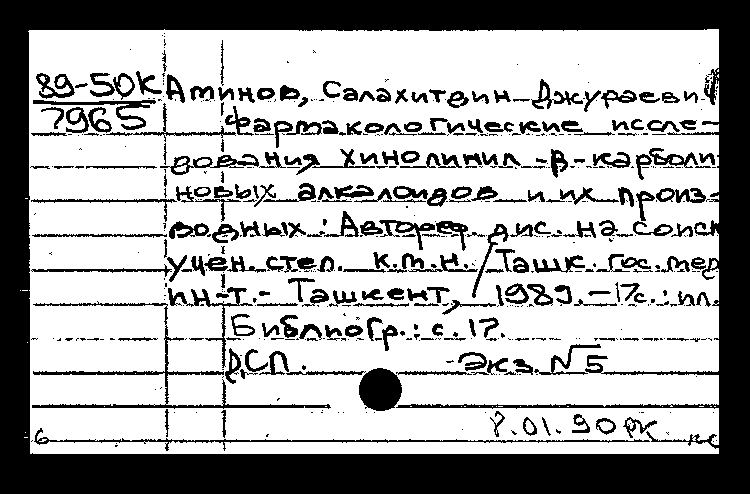 89-50К Аминов, Салахитдин Джураеви
7965 Фармакологические иссле-
дования хинолинил-β-карболи
новых алкалоидов и их произ-
водных: Автореф. дис. на соиск
учен. степ. к.м.н. / Ташк. гос. мед
ин-т.- Ташкент, 1989.-17с.: ил.
Библиогр.: с. 17.
ДСП. Экз. N 5
8.01.90 РК
6